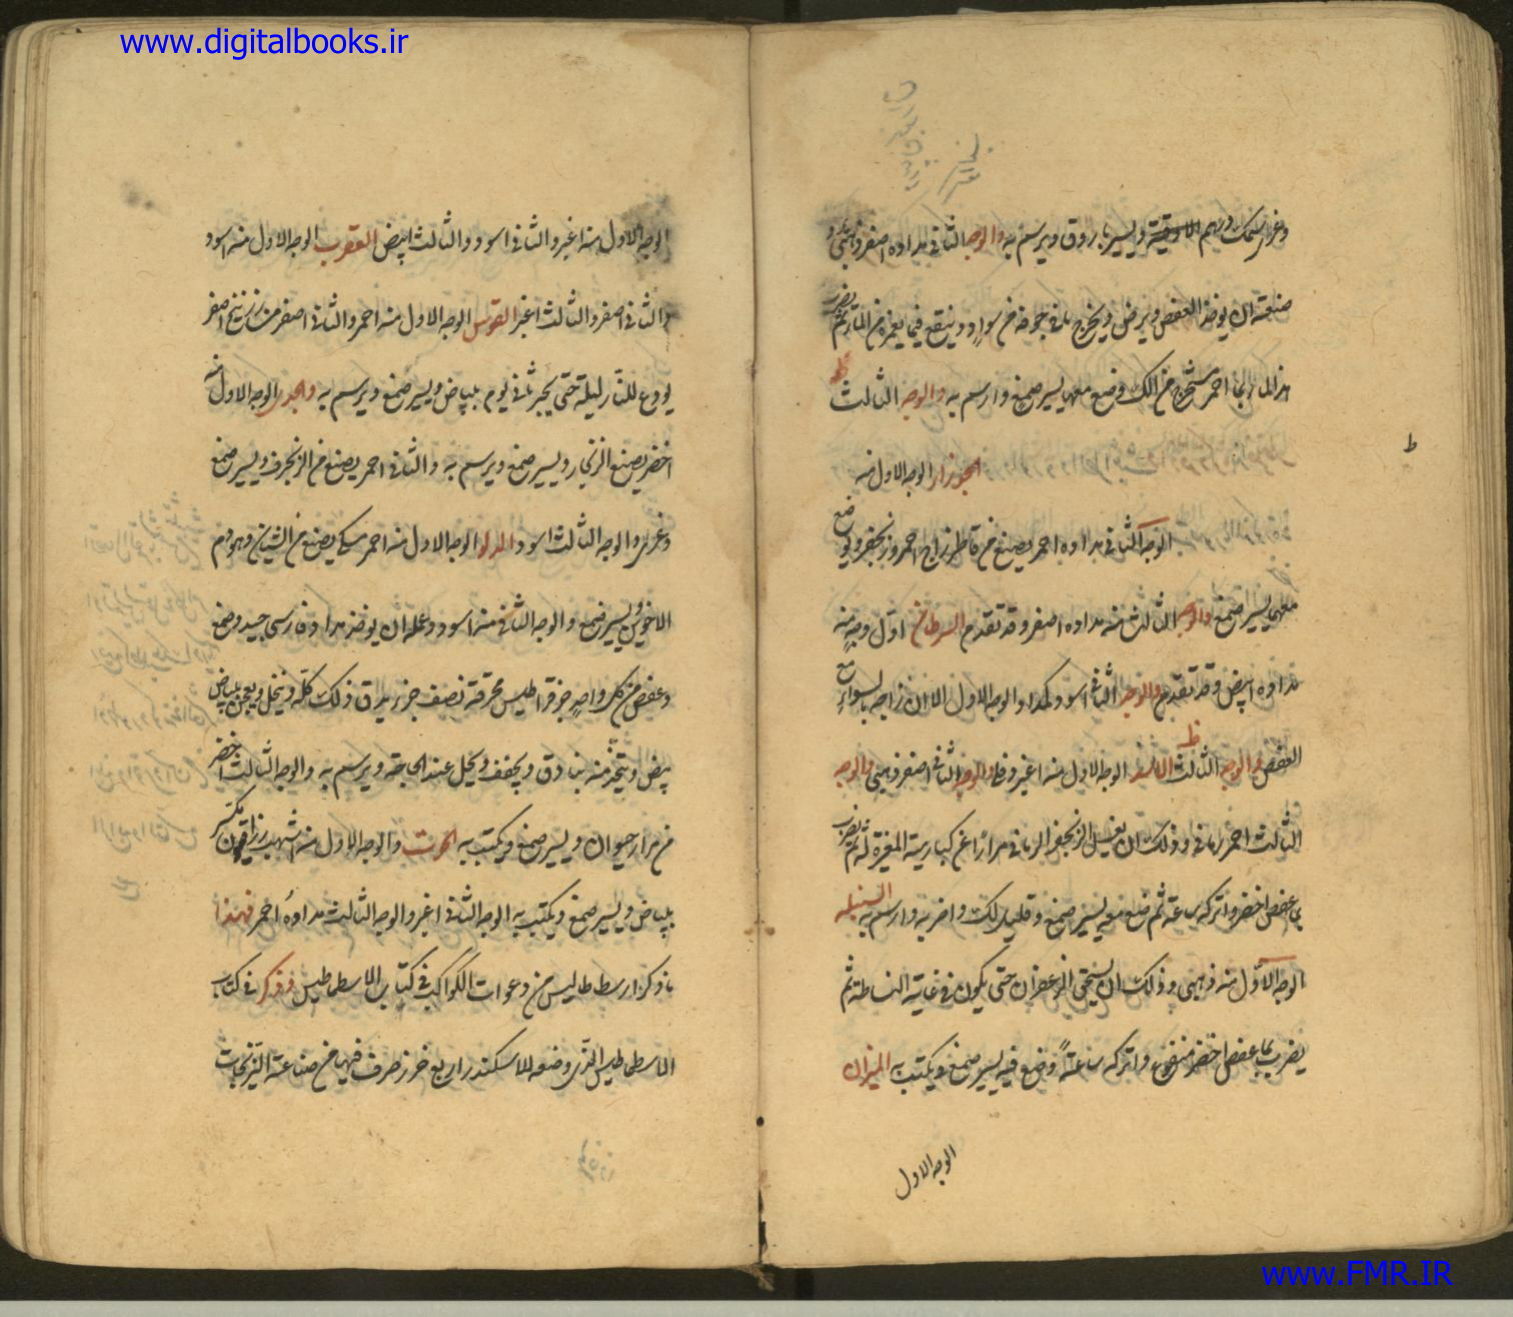 www.digitalbooks.ir
وغراء سمك درهم الاوقية ويسير بارزوق ويرسم به والوجه الثاني مداده اصفر ذهبي و
صنعته ان يوخذ العفص ويرض ويخرج ما في جوفه من سواد وينقع فيما يغمره من الماء ثم يضرب
هذا الماء بماء احمر مستخرج من اللك وضع معهما يسير صمغ وارسم به والوجه الثالث
الجوزاء الوجه الاول منه
الوجه الثاني مداده احمر يصنع من قاطر زاج احمر وزنجفر ويوضع
معهما يسير صمغ والوجه الثالث منه مداده اصفر وقد تقدم السرطان اول وجه منه
مداده ابيض وقد تقدم والوجه الثاني اسود كمداد الوجه الاول الا ان زاجه بالسواء مع
العفص والوجه الثالث الاسد الوجه الاول منه اغبر وفا والوجه الثاني اصفر ذهبي والوجه
الثالث احمر رماني وذلك ان يغسل الزنجفر الرماني مرارا عن كبارية المغرة له ثم يضرب
بماء عفص اخضر واتركه ساعة ثم ضع معه يسير صمغ وقليل لك واضربه وارسم به السنبلة
الوجه الاول منه ذهبي وذلك ان يسحق الزعفران حتى يكون في غاية النشاطة ثم
يضرب بماء عفص اخضر منقوع واتركه ساعة وضع فيه يسير صمغ ويكتب به الميزان
الوجه الاول
الوجه الاول منه اغبر والثاني اسود والثالث ابيض العقرب الوجه الاول منه اسود
والثاني اصفر والثالث اغبر القوس الوجه الاول منه احمر والثاني اصفر من زرنيخ اصفر
يودع للنار ليلة حتى يحمر ثاني يوم ببياض ويسير صمغ ويرسم به والجدي الوجه الاول منه
اخضر يصنع الزنجار ويسير صمغ ويرسم به والثاني احمر يصنع من الزنجرف ويسير صمغ
وغرى والوجه الثالث اسود الدلو الوجه الاول منه احمر مسكي يصنع من الشيان وهو دم
الاخوين ويسير صمغ والوجه الثاني منه اسود وعمله ان يوخذ مداد فارسي جيد وصمغ
وعفص من كل واحد جزو قراطيس محرقة نصف جزء يدق ذلك كله وينخل ويعجن ببياض
بيض ويتخذ منه بنادق ويجفف ويحل عند الحاجة ويرسم به والوجه الثالث اخضر
من مرار حيوان ويسير صمغ ويكتب به الحوت والوجه الاول منه اشهب
ببياض ويسير صمغ ويكتب به الوجه الثاني اغبر والوجه الثالث مداده احمر فهذا
ما ذكر ارسطاطاليس من دعوات الكواكب في كتاب الاسطماطيس وذكر في كتاب
الاسطماطيس الذي وضعه للاسكندر اربع خرز ظرف فيها من صناعة النيرنجات
www.FMR.IR